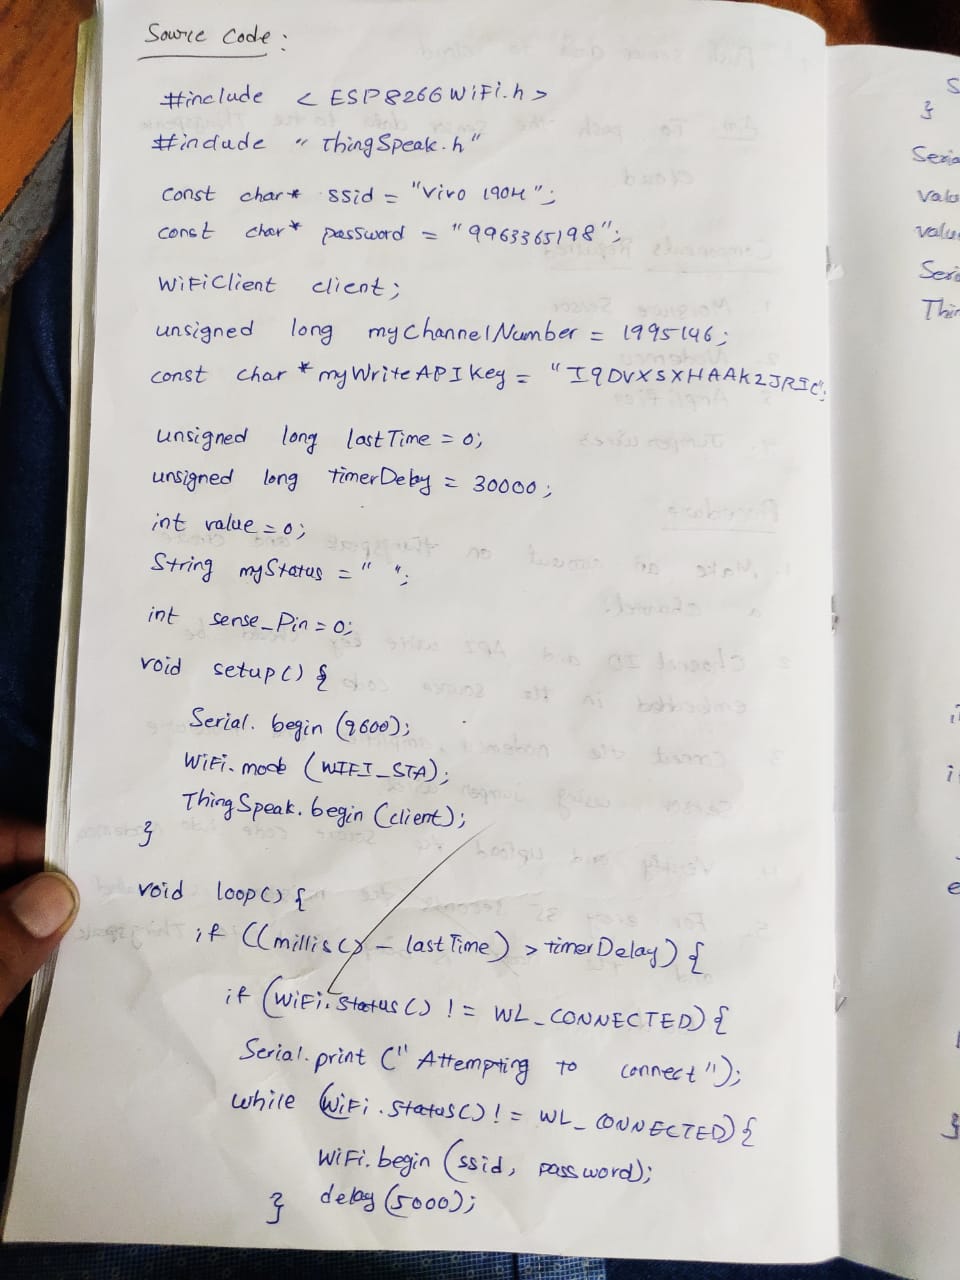 Source Code:
#include < ESP8266WiFi.h >
#include "ThingSpeak.h"
const char* ssid = "vivo 1904";
const char* password = "9963365198";
WiFiClient client;
unsigned long myChannelNumber = 1995146;
const char * myWriteAPIKey = "I9DVXSXHAAK2JRIC";
unsigned long lastTime = 0;
unsigned long timerDelay = 30000;
int value = 0;
String myStatus = " ";
int sense_Pin = 0;
void setup() {
Serial. begin (9600);
WiFi. mode (WIFI_STA);
ThingSpeak. begin (client);
}
void loop() {
if ((millis() - lastTime) > timerDelay) {
if (WiFi.status() != WL_CONNECTED) {
Serial.print (" Attempting to connect");
while (WiFi.status() != WL_CONNECTED) {
WiFi. begin (ssid, password);
delay (5000);
}
S
}
Seria
valu
valu
Seri
Thin
i
e
}